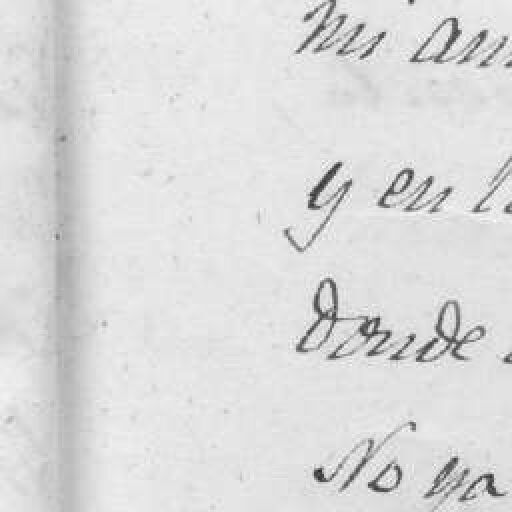 mi am
y en l
donde
No ya